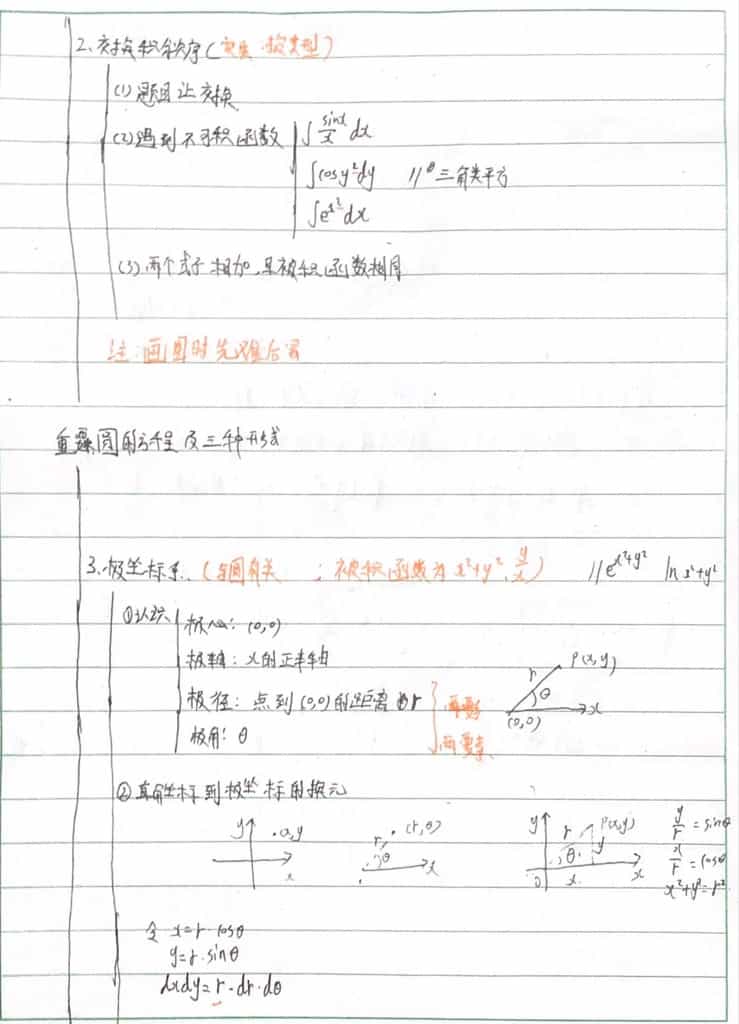 2、交换积分秩序(实质:换类型)
(1)题目让交换
(2)遇到不可积函数 ∫sinx/x dx
∫cosy²dy //θ三角类平方
∫e^x² dx
(3)两个式子相加,且被积函数相同
注:画图时先难后易
重温圆的方程及三种形式
3、极坐标系 (与圆有关;被积函数为x²+y²、y/x) //e^x²+y² ln x²+y²
①认识 极心:(0,0)
极轴:x的正半轴
极径:点到(0,0)的距离 r
极角:θ
两要素
r θ P(x,y) (0,0) x
②直角坐标到极坐标的换元
y x,y x
r (r,θ) θ x
y r P(x,y) θ y 0 x x
y/r=sinθ
x/r=cosθ
x²+y²=r²
令 x=r·cosθ
y=r·sinθ
dxdy=r·dr·dθ